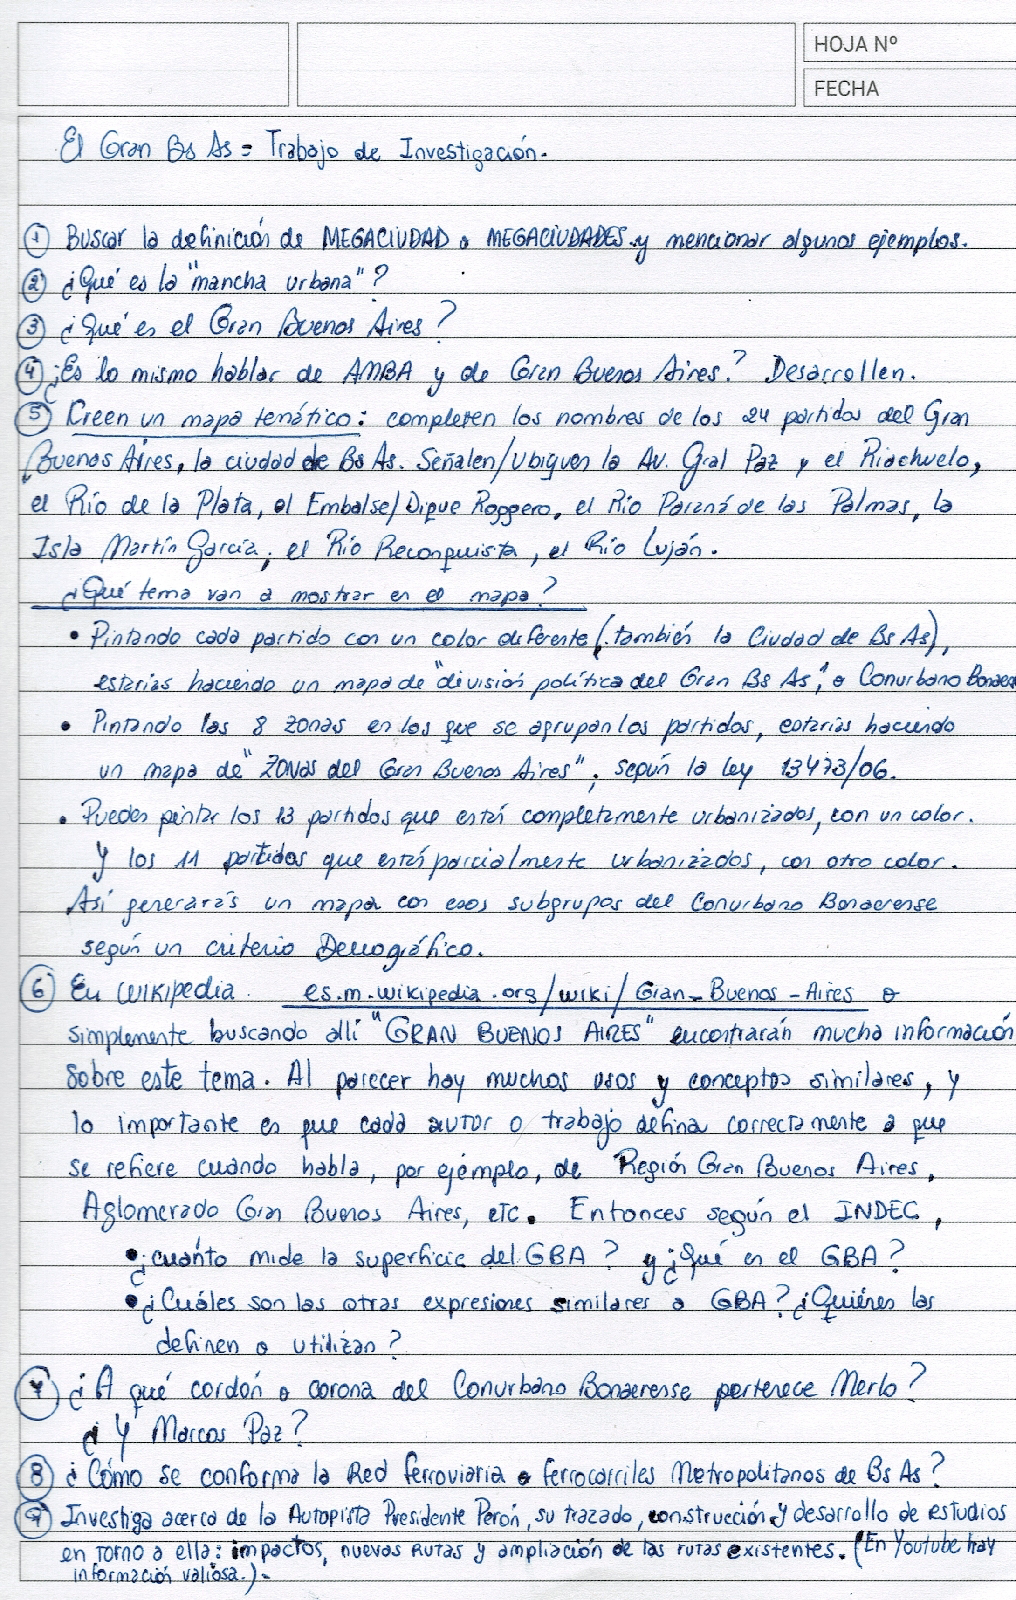 HOJA Nº
FECHA
El Gran Bs As = Trabajo de Investigación.
① Buscar la definición de MEGACIUDAD o MEGACIUDADES y mencionar algunos ejemplos.
② ¿Qué es la "mancha urbana"?
③ ¿Qué es el Gran Buenos Aires?
④ ¿Es lo mismo hablar de AMBA y de Gran Buenos Aires? Desarrollen.
⑤ Creen un mapa temático: completen los nombres de los 24 partidos del Gran
Buenos Aires, la ciudad de Bs As. Señalen/Ubiquen la Av. Gral Paz y el Riachuelo,
el Río de la Plata, el Embalse/Dique Roggero, el Río Paraná de las Palmas, la
Isla Martín García, el Río Reconquista, el Río Luján.
¿Qué tema van a mostrar en el mapa?
• Pintando cada partido con un color diferente (también la Ciudad de Bs As),
estarías haciendo un mapa de "división política del Gran Bs As", o Conurbano Bonaer
• Pintando las 8 zonas en los que se agrupan los partidos, estarías haciendo
un mapa de "ZONAS del Gran Buenos Aires", según la ley 13473/06.
• Puedes pintar los 13 partidos que están completamente urbanizados, con un color.
Y los 11 partidos que están parcialmente urbanizados, con otro color.
Así generarás un mapa con esos subgrupos del Conurbano Bonaerense
según un criterio Demográfico.
⑥ En WIKIPEDIA es.m.wikipedia.org/wiki/Gran_Buenos_Aires o
simplemente buscando allí "GRAN BUENOS AIRES" encontrarán mucha información
sobre este tema. Al parecer hay muchos usos y conceptos similares, y
lo importante es que cada autor o trabajo defina correctamente a que
se refiere cuando habla, por ejemplo, de Región Gran Buenos Aires,
Aglomerado Gran Buenos Aires, etc. Entonces según el INDEC,
• ¿cuánto mide la superficie del GBA? y ¿Qué es el GBA?
• ¿Cuáles son las otras expresiones similares a GBA? ¿Quiénes las
definen o utilizan?
⑦ ¿A qué cordón o corona del Conurbano Bonaerense pertenece Merlo?
¿Y Marcos Paz?
⑧ ¿Cómo se conforma la Red ferroviaria o ferrocarriles Metropolitanos de Bs As?
⑨ Investiga acerca de la Autopista Presidente Perón, su trazado, construcción y desarrollo de estudios
en torno a ella: impactos, nuevas rutas y ampliación de las rutas existentes. (En Youtube hay
información valiosa.).